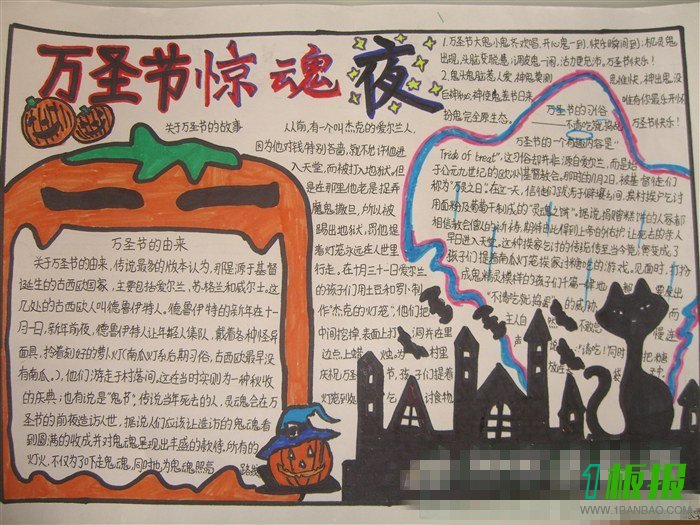 万圣节惊魂夜
关于万圣节的故事
从前,有个叫杰克的爱尔兰人,
因为他对钱特别吝啬,就不允许他进
入天堂,而被打入地狱。但
是在那里他老是捉弄
魔鬼撒旦,所以被
踢出地狱,罚他提
着灯笼永远在人世里
行走。在十月三十一日爱尔兰
的孩子们用土豆和萝卜制
作"杰克的灯笼",他们把
中间挖掉,表面上打洞并在里
边点上蜡烛,为
庆祝万圣节,孩子们提着
灯笼到 讨食物
万圣节的由来
关于万圣节的由来,传说最多的版本认为,那是源于基督
诞生前的古西欧国家,主要包括爱尔兰、苏格兰和威尔士。这
几处的古西欧人叫德鲁伊特人。德鲁伊特的新年在十
一月一日,新年前夜,德鲁伊特人让年轻人集队,戴着各种怪异
面具,拎着刻好的萝卜灯(南瓜灯系后期习俗,古西欧最早没
有南瓜。),他们游走于村落间。这在当时实则为一种秋收
的庆典;也有说是"鬼节",传说当年死去的人,灵魂会在万
圣节的前夜造访人世,据说人们应该让造访的鬼魂看
到圆满的收成并对鬼魂呈现出丰盛的款待。所有的
灯火,不仅为了吓走鬼魂,同时也为鬼魂照亮 路线
1.万圣节大鬼小鬼齐欢唱,开心鬼一到,快乐瞬间到;机灵鬼
出现,头脑变聪慧;调皮鬼一闹,活力更充沛。万圣节快乐!
2.鬼头鬼脑惹人爱,神鬼莫测 鬼出没
惟有你最乐开怀
扮鬼完全原生态。 万圣节快乐!
万圣节的习俗
——不请吃就捣乱
万圣节的一个有趣内容是"
Trick or treat",这习俗却并非源自爱尔兰,而是始
于公元九世纪的欧洲基督教会。那时的11月2日,被基督徒们
称为"万灵之日"。在这一天,信徒们跋涉于僻壤乡间,挨村挨户乞讨
用面粉及葡萄干制成的"灵魂之饼"。据说捐赠糕饼的人家都
相信教会僧人的祈祷,期待由此得到上帝的佑护,让死去的亲人
早日进入天堂。这种挨家乞讨的传统传至当今竟演变成了
孩子们提着南瓜灯笼挨家讨糖吃的游戏。见面时,打扮
成鬼精灵模样的孩子们
"不请吃就捣乱"的威胁
主人自 不敢怠
请吃!"同时 把糖
放
1板报
WWW.1BANBAO.COM